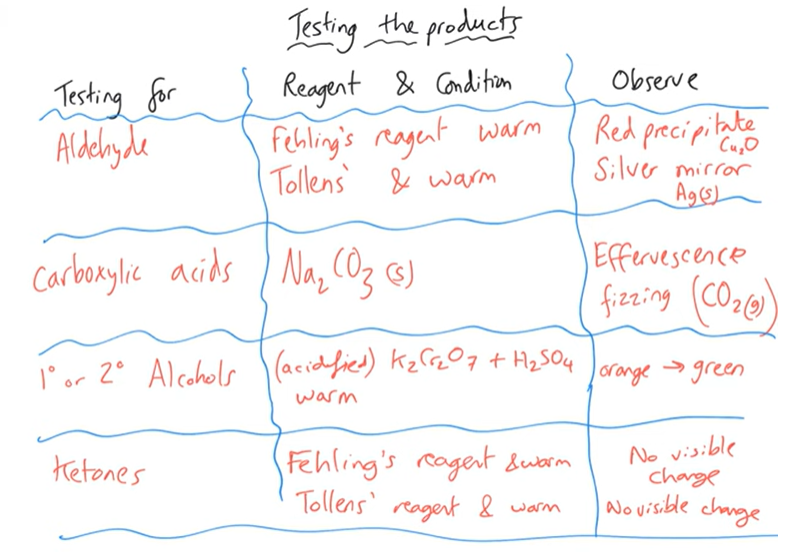 Testing the products
Testing for
Reagent & Condition
Observe
Aldehyde
Fehling's reagent warm
Tollens' & warm
Red precipitate
Cu₂O
Silver mirror
Ag(s)
Carboxylic acids
Na₂CO₃ (s)
Effervescence
fizzing (CO₂(g))
1° or 2° Alcohols
(acidified) K₂Cr₂O₇ + H₂SO₄
warm
orange → green
Ketones
Fehling's reagent & warm
Tollens' reagent & warm
No visible
change
No visible change